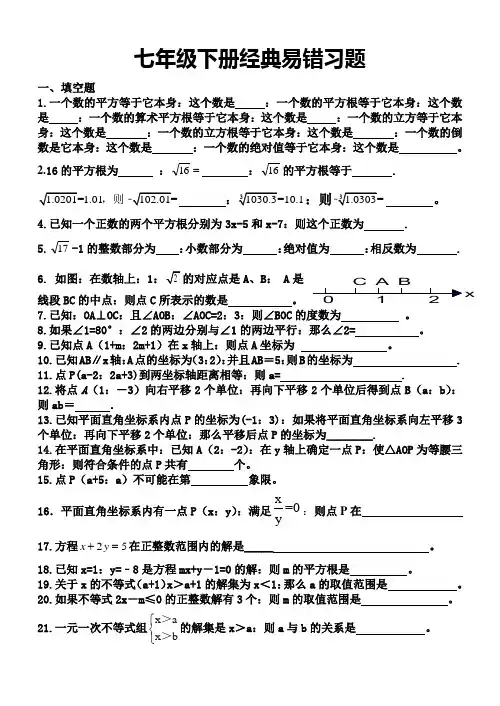 七年级下册经典易错习题
一、填空题
1.一个数的平方等于它本身：这个数是 ：一个数的平方根等于它本身：这个数
是 ：一个数的算术平方根等于它本身：这个数是 ：一个数的立方等于它本
身：这个数是 ：一个数的立方根等于它本身：这个数是 ：一个数的倒
数是它本身：这个数是 ：一个数的绝对值等于它本身：这个数是 。
2.16的平方根为 ：√16= ：√16的平方根等于 .
√1.0201=1.01，则-√102.01= ：∛1030.3=10.1：则-∛1.0303= 。
4.已知一个正数的两个平方根分别为3x-5和x-7：则这个正数为 .
5.√17-1的整数部分为 ：小数部分为 ：绝对值为 ：相反数为 .
6. 如图：在数轴上：1：√2的对应点是A、B： A是
线段BC的中点：则点C所表示的数是 。
C A B
0 1 2 x
7.已知：OA⊥OC：且∠AOB：∠AOC=2：3：则∠BOC的度数为 。
8.如果∠1=80°：∠2的两边分别与∠1的两边平行：那么∠2= 。
9.已知点A（1+m：2m+1）在x轴上：则点A坐标为 。
10.已知AB∥x轴：A点的坐标为(3：2)：并且AB＝5：则B的坐标为 .
11.点P(a-2：2a+3)到两坐标轴距离相等：则a= .
12.将点A（1：－3）向右平移2个单位：再向下平移2个单位后得到点B（a：b）：
则ab＝ .
13.已知平面直角坐标系内点P的坐标为(-1：3)：如果将平面直角坐标系向左平移3
个单位：再向下平移2个单位：那么平移后点P的坐标为________.
14.在平面直角坐标系中：已知A（2：-2）：在y轴上确定一点P：使△AOP为等腰三
角形：则符合条件的点P共有 个。
15.点P（a+5：a）不可能在第 象限。
16．平面直角坐标系内有一点P（x：y）：满足x/y=0：则点P在
17.方程x+2y=5在正整数范围内的解是_____ 。
18.已知x=1：y=﹣8是方程mx+y－1=0的解：则m的平方根是 。
19.关于x的不等式(a+1)x＞a+1的解集为x＜1：那么a的取值范围是 。
20.如果不等式2x－m≤0的正整数解有3个：则m的取值范围是 。
21.一元一次不等式组{x＞a x＞b的解集是x＞a：则a与b的关系是 。